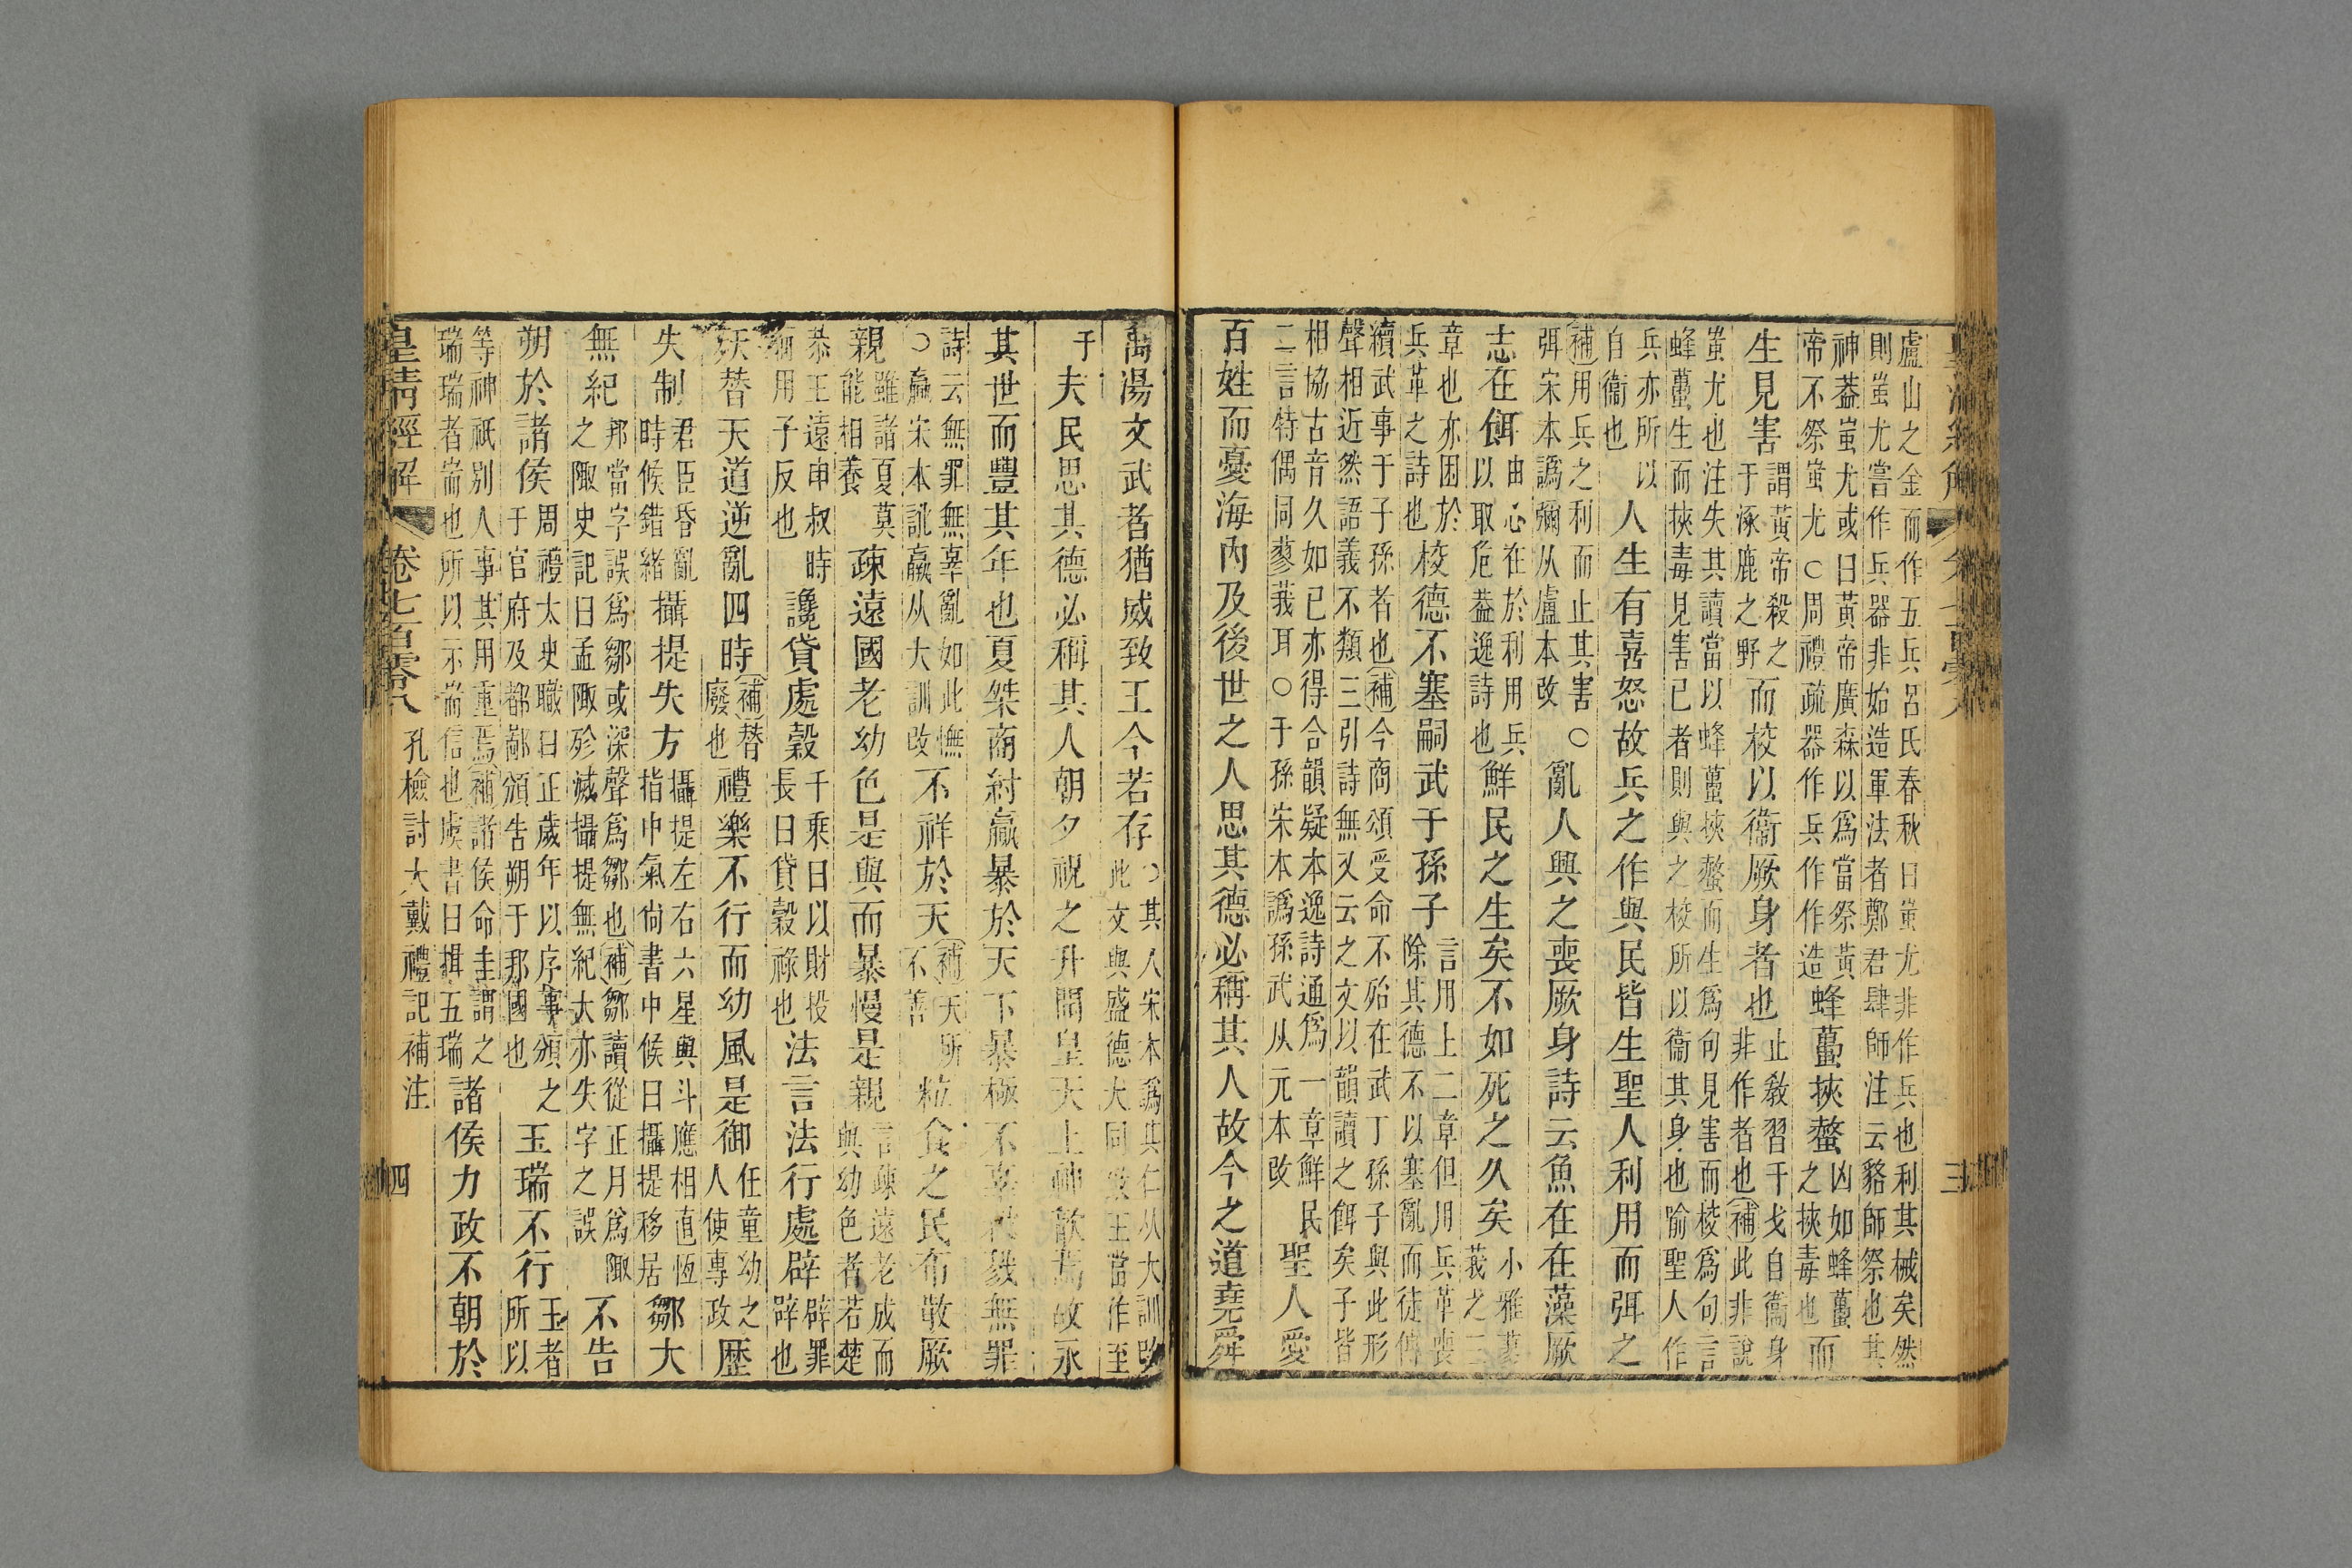 盧山之金而作五兵呂氏春秋曰蚩尤非作兵也利其械矣然
則蚩尤嘗作兵器非始造軍法者鄭君肆師注云貉師祭也其
神葢蚩尤或曰黃帝廣森以爲當祭黃
帝不祭蚩尤○周禮疏器作兵作作造
蜂蠆挾螫
凶如蜂蠆
之挾毒也
而
生見害
謂黃帝殺之
于涿鹿之野
而校以衞厥身者也
止敎習干戈自衞身
非作者也補此非說
蚩尤也注失其讀當以蜂蠆挾螫而生爲句見害而校爲句言
蜂蠆生而挾毒見害已者則與之校所以衞其身也喻聖人作
兵亦所以
自衞也
人生有喜怒故兵之作與民皆生聖人利用而弭之
補用兵之利而止其害○
弭宋本譌彌从盧本改
亂人興之喪厥身詩云魚在在藻厥
志在餌
由心在於利用兵
以取危葢逸詩也
鮮民之生矣不如死之久矣
小雅蓼
莪之三
章也亦困於
兵革之詩也
校德不塞嗣武于孫子
言用上二章但用兵革喪
除其德不以塞亂而徒傳
續武事于子孫者也補今商頌受命不殆在武丁孫子與此形
聲相近然語義不類三引詩無又云之文以韻讀之餌矣子皆
相協古音久如已亦得合韻疑本逸詩通爲一章鮮民
二言特偶同蓼莪耳○于孫宋本譌孫武从元本改
聖人愛
百姓而憂海內及後世之人思其德必稱其人故今之道堯舜
三
禹湯文武者猶威致王今若存
○其人宋本譌其仁从大訓改
此文與盛德大同致王當作至
于
夫民思其德必稱其人朝夕祝之升聞皇天上神歆焉故永
其世而豐其年也夏桀商紂羸暴於天下暴極不辜殺戮無罪
詩云無罪無辜亂如此憮
○羸宋本訛嬴从大訓改
不祥於天
補天所
不善
粒食之民布散厥
親
雖諸夏莫
能相養
疎遠國老幼色是與而暴慢是親
言疎遠老成而
與幼色者若楚
恭王遠申叔時
用子反也
讒貸處穀
千乘曰以財投
長曰貸穀祿也
法言法行處辟
辟罪
辟也
殀替天道逆亂四時
補替
廢也
禮樂不行而幼風是御
任童幼之
人使專政
歴
失制
君臣昏亂
時候錯緒
攝提失方
攝提左右六星與斗應相直恆
指中氣尙書中候曰攝提移居
鄒大
無紀
邦當字誤爲鄒或深聲爲鄒也補鄒讀從正月爲陬
之陬史記曰孟陬殄滅攝提無紀大亦失字之誤
不告
朔於諸侯
周禮太史職曰正歲年以序事頒之
于官府及都鄙頒告朔于邦國也
玉瑞不行
玉者
所以
等神祇別人事其用重焉補諸侯命圭謂之
瑞瑞者耑也所以示耑信也虞書曰揖五瑞
諸侯力政不朝於
皇清經解 卷七百零八 孔檢討大戴禮記補注 四